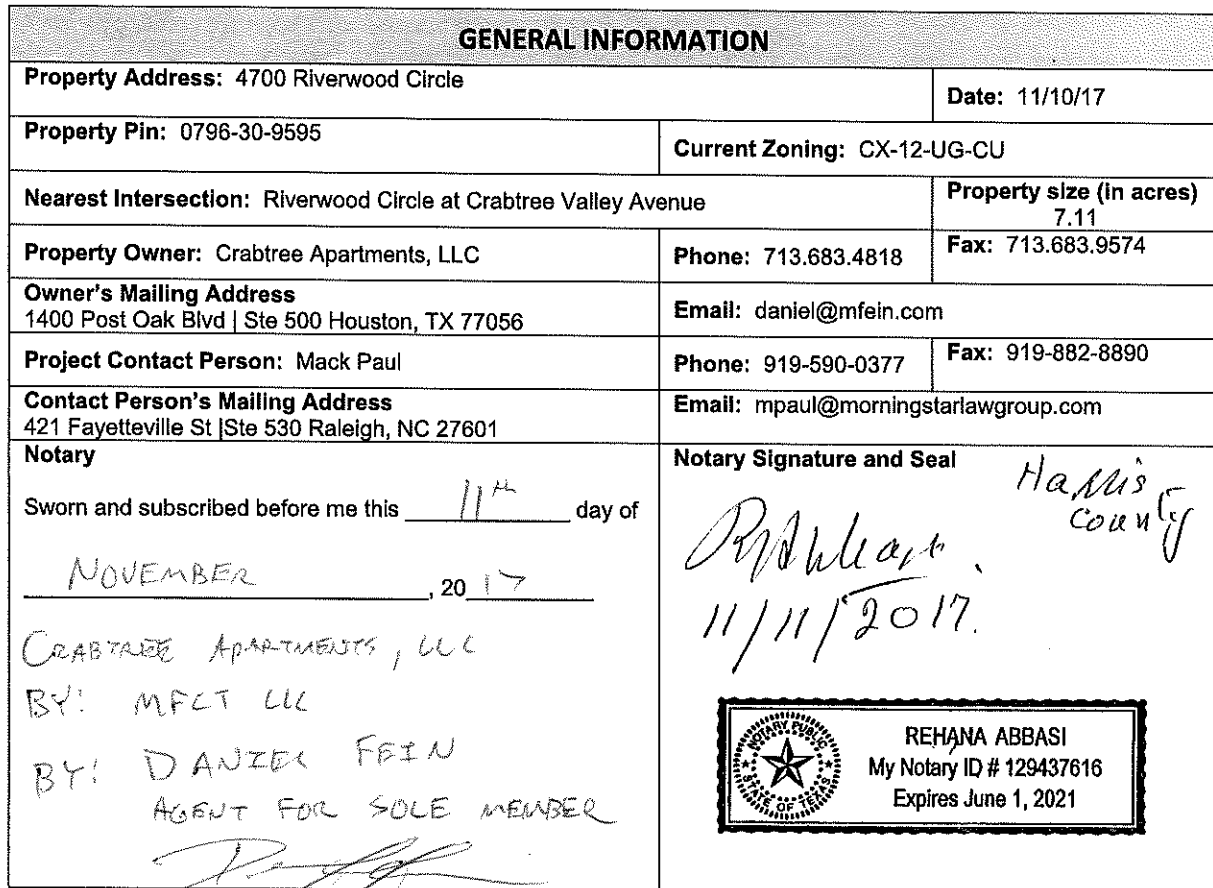 GENERAL INFORMATION
Property Address: 4700 Riverwood Circle
Date: 11/10/17
Property Pin: 0796-30-9595
Current Zoning: CX-12-UG-CU
Nearest Intersection: Riverwood Circle at Crabtree Valley Avenue
Property size (in acres)
7.11
Property Owner: Crabtree Apartments, LLC
Phone: 713.683.4818
Fax: 713.683.9574
Owner's Mailing Address
1400 Post Oak Blvd | Ste 500 Houston, TX 77056
Email: daniel@mfein.com
Project Contact Person: Mack Paul
Phone: 919-590-0377
Fax: 919-882-8890
Contact Person's Mailing Address
421 Fayetteville St |Ste 530 Raleigh, NC 27601
Email: mpaul@morningstarlawgroup.com
Notary
Sworn and subscribed before me this 11th day of
NOVEMBER, 20 17
CRABTREE APARTMENTS, LLC
BY: MFCT LLC
BY: DANIEL FEIN
AGENT FOR SOLE MEMBER
Notary Signature and Seal
Harris
County
11/11/2017.
NOTARY PUBLIC
STATE OF TEXAS
REHANA ABBASI
My Notary ID # 129437616
Expires June 1, 2021